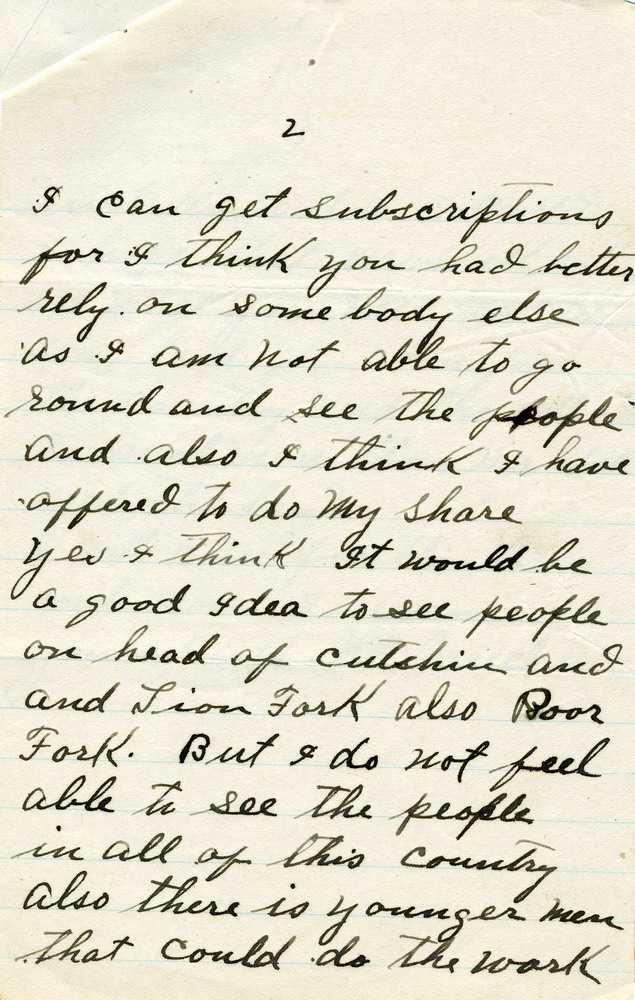 2
I can get subscriptions
for I think you had better
rely on some body else
as I am not able to go
round and see the people
and also I think I have
offered to do my share
yes I think It would be
a good Idea to see people
on head of cutshin and
and Lion Fork also Poor
Fork. But I do not feel
able to see the people
in all of this country
also there is younger men
that could do the work